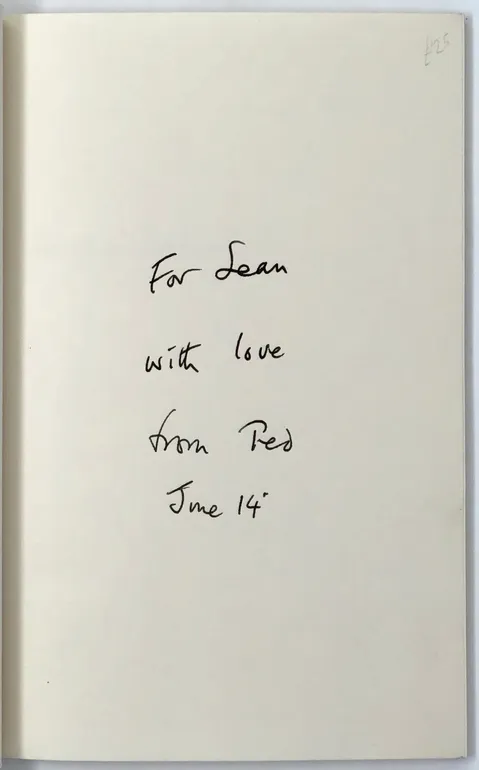 £25
For Sean
with love
from Ted
June 14